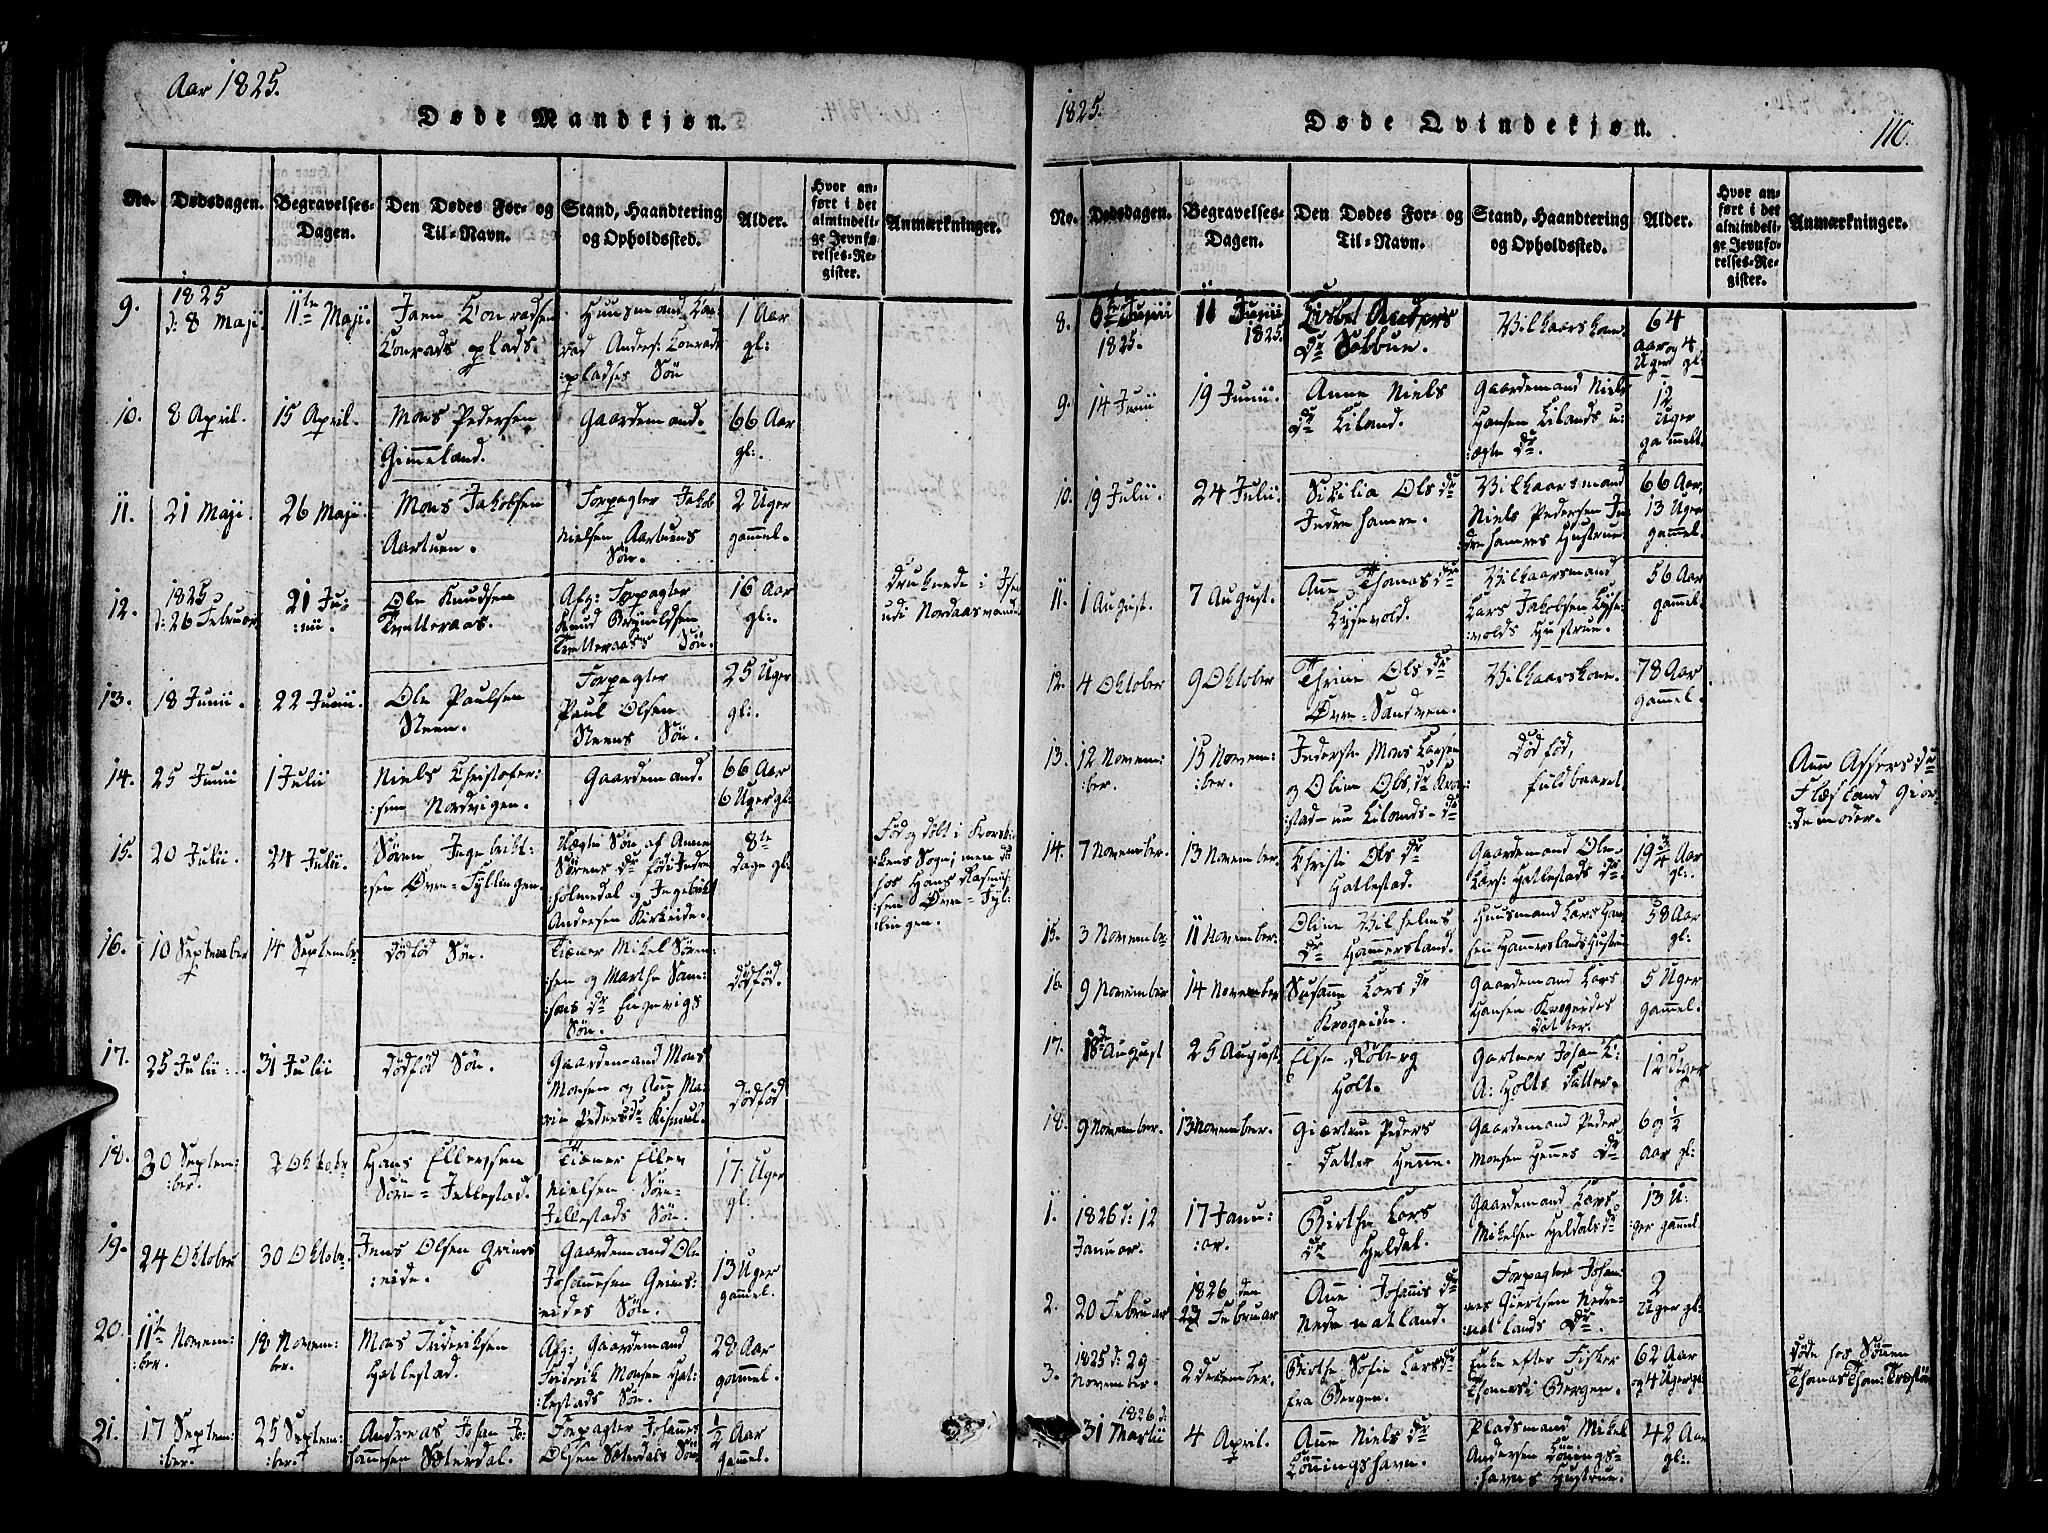 Aar 1825.
Døde Mandkjøn.
No.
Dødsdagen.
Begravelses-
Dagen.
Den Dødes For- og
Til-Navn.
Stand, Haandtering
og Opholdssted.
Alder.
Hvor an-
ført i det
almindeli-
ge Jevnfø-
relses-Re-
gister.
Anmærkninger.
9.
1825
d: 8 Maji
11te Maji.
Konrads plads:
Huusmand Kon-
rad Anders: Konrads
:pladses Søn
1 Aar
gl:
10.
8 April.
15 April.
Mons Pedersen
Gimmeland.
Gaardemand.
66 Aar
gl:.
11.
21 Maji.
26 Maji.
Mons Jakobsen
Aartuen.
Forpagter Jakob
Nielsen Aartuens
Søn.
2 Uger
gammel.
12.
1825
d: 26 Februar
21 Ju:
:nii.
Ole Knudsen
Tvetteraas.
Afg: Forpagter
Knud Brynildsen
Tvetteraas Søn.
16 Aar
gl:.
druknede i Isen
udi Nordaasvande
13.
18 Junii.
22 Junii.
Ole Paulsen
Steen.
Forpagter
Paul Olsen
Steens Søn.
25 Uger
gl:.
14.
25 Junii
1 Julii
Niels Christofer:
:sen Nordvigen.
Gaardemand.
66 Aar
6 Uger gl:
15.
20 Julii.
24 Julii.
Sören Ingebrikt:
:sen Øvre-Tyllingen.
Uægte Søn af Anne
Sørens dr fød i Indre
:holmedal og Ingebrikt
Andersen Kirkeide.
8te
dage gl:
Fød og døbt i Korski:
:kens Sogn; men dø
hos Hans Rasmus:
:sen Øvre-Tyl:
:lingen.
16.
10 September
14 September
dødfød Søn.
Tiener Mikel Sören:
:sen og Marthe Sam:
:sons dr Engevigs
Søn.
dødfød.
17.
25 Julii:
31 Julii
dødfød Søn.
Gaardemand Mons
Monsen og Ane Ma:
rie Pedersdr Kismul.
dødfød
18.
30 Septem:
:ber.
2 Oktobr
Hans Ellersen
Søre-Fellestad.
Tiener Eller
Nielsen Søre-
Fellestads Søn.
17 Uger
gl:
19.
24 Oktober
30 Oktobr.
Jens Olsen Grims
:eide.
Gaardemand Ole
Johannesen Grims:
:eides Søn.
13 Uger
gammel.
20.
11te Novem:
ber.
18 Novem:
ber.
Mons Frideriksen
Hatlestad.
Afg: Gaardemand
Friderik Monsen Hat:
:lestads Søn.
28 Aar
gammel.
21.
17 Septem:
:ber.
25 Septem:
:ber.
Andreas Johan Jo:
:hannesen Sæterdal.
Forpagter Johannes
Olsen Sæterdals Søn
1/2 Aar
gammel.
1825.
Døde Qvindekjøn.
110.
No.
Dødsdagen.
Begravelses-
Dagen.
Den Dødes For- og
Til-Navn.
Stand, Haandtering
og Opholdssted.
Alder.
Hvor an-
ført i det
almindeli-
ge Jevnfø-
relses-Re-
gister.
Anmærkninger.
8.
6te Junii
1825.
11 Junii
1825.
Lisbet Anders
dr Solbue.
Vilkaarskone.
64
Aar og 4
Uger gl:
9.
14 Junii
19 Junii.
Anne Niels
dr Liland.
Gaardemand Niels
Hansen Lilands u:
:ægte dr.
12
Uger
gammel.
10.
19 Julii.
24 Julii.
Sikilia Ols dr
Indre hamre.
Vilkaarsmand
Niels Pedersen In
:drehamres Hustrue
66 Aar,
13 Uger
gammel.
11.
1 August.
7 August.
Ane Thomas dr
Lysevold.
Vilkaarsmand
Lars Jakobsen Lyse:
:volds Hustrue.
56 Aar
gammel.
12.
4 Oktober
9 Oktober
Thrine Ols dr
Øvre-Sandven.
Vilkaarskone.
78 Aar
gammel.
13.
12 Novem:
:ber.
15 Novem:
:ber.
og Oline Ols dr
:stad-nu Lilands-dr
dødfød,
fuldbaaret
Ane Assers dr
Flæsland Gior:
:demoder.
14.
7 November.
13 November.
Christi Ols dr
Hatlestad.
Gaardemand Ole
Lars: Hatlestads dr.
19 3/4 Aar
gl:
15.
3 Novembr
11 November.
Oline Vilhelms
dr Hammersland.
Huusmand Lars Han
sen Hammerslands Hustrue
58 Aar
gl:
16.
9 November
14 November
Susanne Lars dr
Krogeide.
Gaardemand Lars
Hansen Krogeides
Datter.
5 Uger
gammel.
17.
18 August
25 August,
Else Roberg
Holt.
Gartner Johan C:
A: Holts Datter.
12 Uger
18.
9 November.
13 November.
Giørtrue Peders
Datter Henne.
Gaardemand Peder
Monsen Hennes dr
6 og 1/2
Aar gl:
1.
1826 d: 12
Januar.
17 Janu:
:ar.
Birthe Lars
dr Heldal.
Gaardemand Lars
Mikelsen Heldals dr
13 U:
ger gammel.
2.
20 Februar
1826 den
Februar
Ane Johannis dr
Nedre natland.
Forpagter Johan:
nes Giertsen Nedre-
:natlands dr.
2
Uger gl:
3.
1825 d: 29
November.
2 December.
Birthe Sofie Larsdr
fra Bergen.
Enke efter Fisker
Thomas i Bergen.
62 Aar
og 4 Uger gl
døde hos Sønnen
Thomas Thom:
1826 d:
31 Martii
4 April.
Ane Niels dr
Lönningshavn.
Pladsmand Mikel
Andersen Lönings-
:havns Hustrue.
42 Aar
gl:.